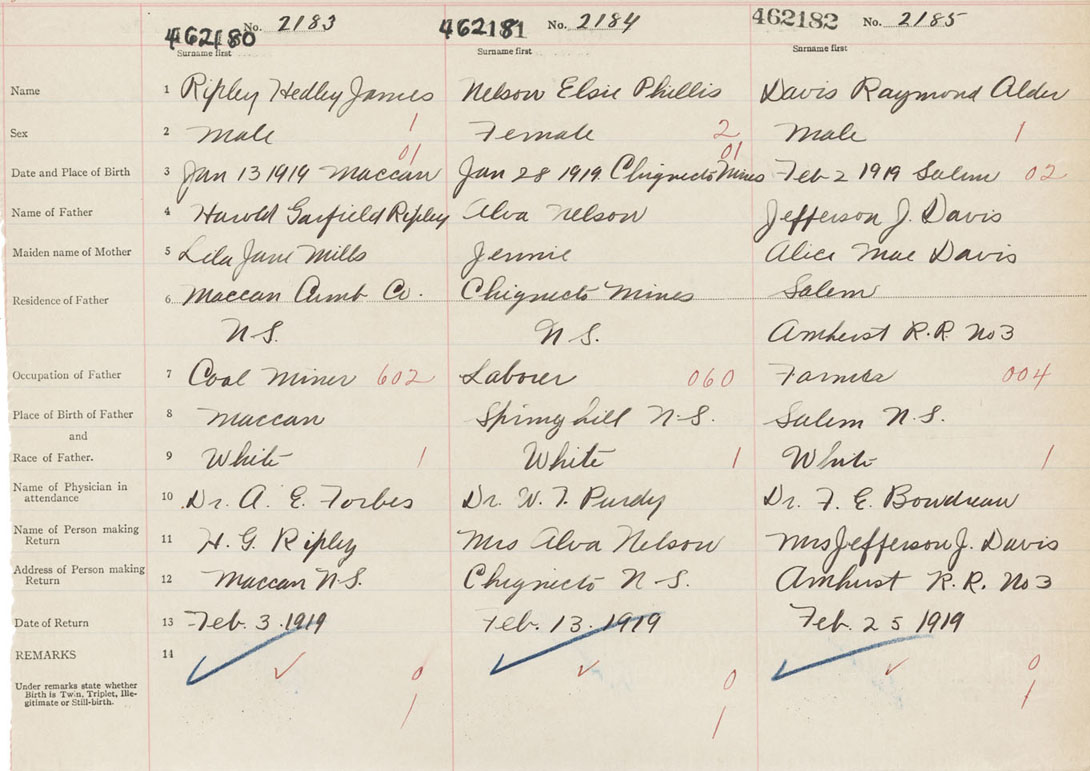 462180 No. 2183 462181 No. 2184 462182 No. 2185
Surname first Surname first Surname first
Name 1 Ripley Hedley James Nelson Elsie Phillis Davis Raymond Alder
Sex 2 Male 1 Female 2 Male 1
01 01
Date and Place of Birth 3 Jan 13 1919 Maccan Jan 28 1919. Chignecto Mines Feb 2 1919 Salem 02
Name of Father 4 Harold Garfield Ripley Alva Nelson Jefferson J. Davis
Maiden name of Mother 5 Lila Jane Mills Jennie Alice Mae Davis
Residence of Father 6 Maccan Cumb Co. Chignecto Mines Salem
N.S. N.S. Amherst R.R. No 3
Occupation of Father 7 Coal Miner 602 Laborer 060 Farmer 004
Place of Birth of Father 8 Maccan Springhill N.S. Salem N.S.
and
Race of Father. 9 White 1 White 1 White 1
Name of Physician in
attendance 10 Dr. A. E. Forbes Dr. W. T. Purdy Dr. F. E. Boudreau
Name of Person making
Return 11 H. G. Ripley Mrs Alva Nelson Mrs Jefferson J. Davis
Address of Person making
Return 12 Maccan N.S. Chignecto N.S. Amherst R.R. No 3
Date of Return 13 Feb. 3. 1919 Feb. 13. 1919 Feb. 25 1919
REMARKS 14
0 0 0
Under remarks state whether
Birth is Twin, Triplet, Ille-
gitimate or Still-birth.
1 1 1